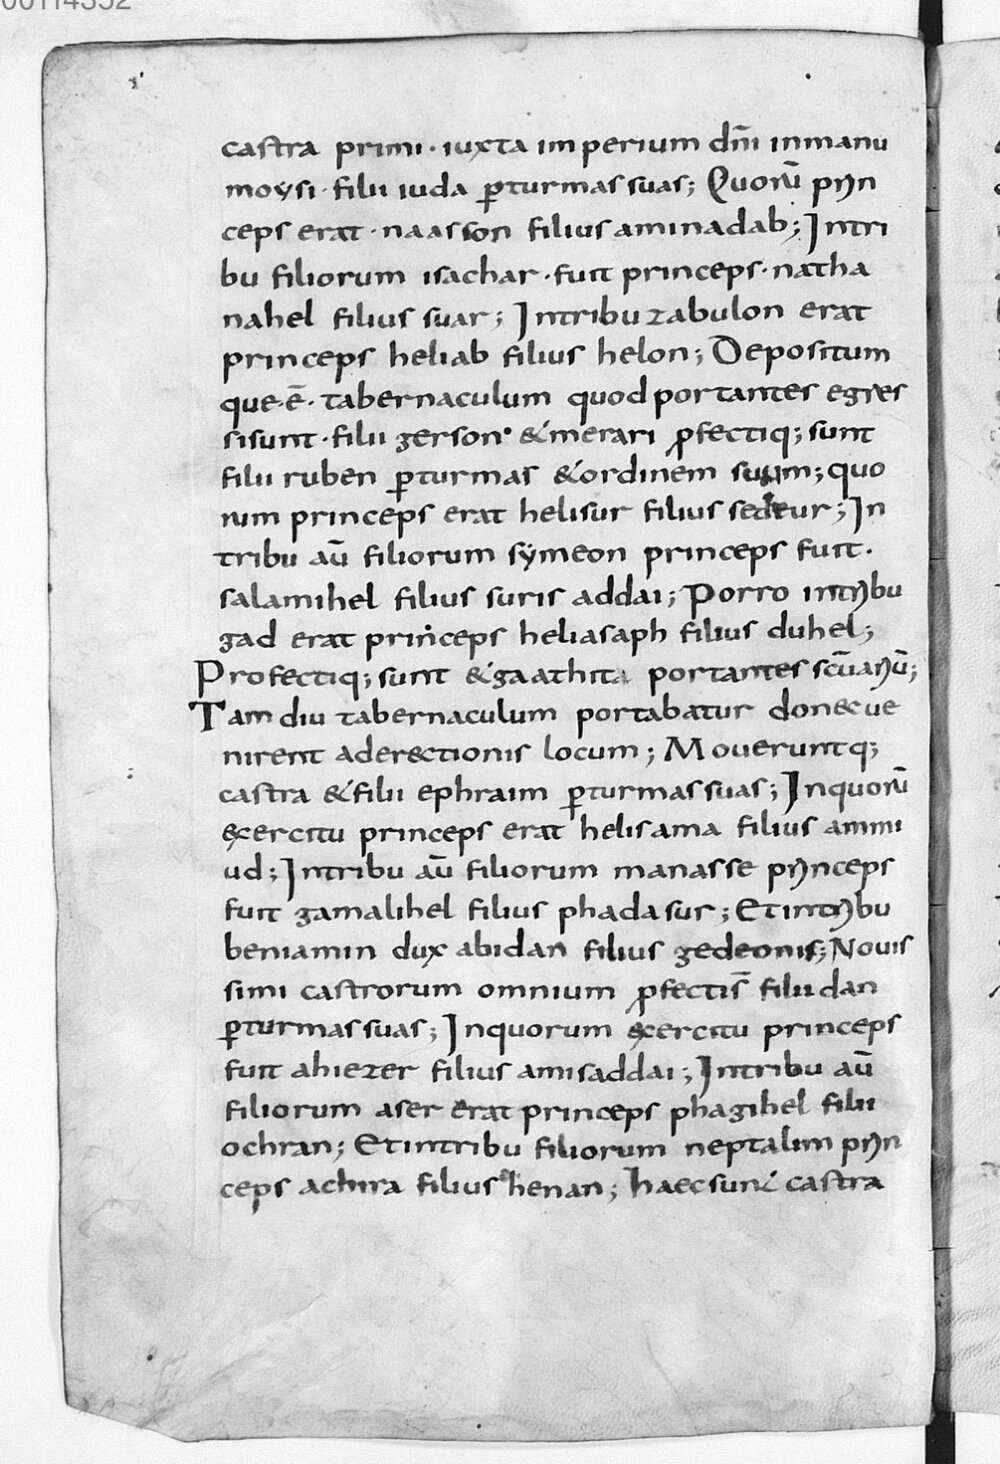 00114352
castra primi · iuxta imperium dn̄i inmanu
moysi · filii iuda ꝑturmas suas; Quorū prin
ceps erat · naasson filius aminadab; Intri
bu filiorum isachar · fuit princeps · natha
nahel filius suar; Intribu zabulon erat
princeps heliab filius helon; Depositum
que · ē · tabernaculum quod portantes egres
sisunt · filii gerson · & merari ꝓfectiq; sunt
filii ruben ꝑturmas & ordinem suum; quo
rum princeps erat helisur filius sedeur; In
tribu aū filiorum symeon princeps fuit ·
salamihel filius suris addai; Porro intribu
gad erat princeps heliasaph filius duhel;
Profectiq; sunt & gaathita portantes scūariū;
Tam diu tabernaculum portabatur donec ue
nirent ad er&ctionis locum; Moueruntq;
castra & filii ephraim ꝑturmas suas; Inquorū
exercitu princeps erat helisama filius ammi
ud; Intribu aū filiorum manasse princeps
fuit gamalihel filius phadasur; Et intribu
beniamin dux abidan filius gedeonis; Nouis
simi castrorum omnium ꝓfectis̄ filii dan
ꝑturmas suas; Inquorum exercitu princeps
fuit ahiezer filius amisaddai; Intribu aū
filiorum aser erat princeps phagihel filii
ochran; Et intribu filiorum neptalim prin
ceps achira filius henan; haec sunt castra